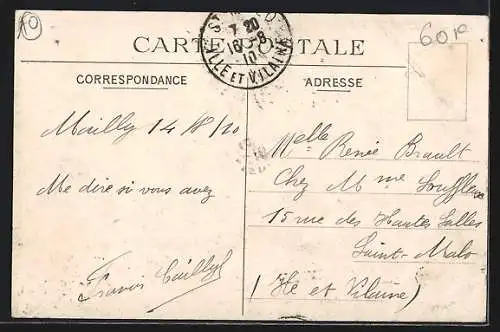 60 F
ST
7 20
16-8
10
ILLE ET VILAINE
CARTE POSTALE
CORRESPONDANCE
ADRESSE
Mailly 14/8/10
Me dire si vous avez
Francis
Melle Renée Brault
Chez Mme
15 rue des Hautes Salles
Saint-Malo
(Ile et Vilaine)